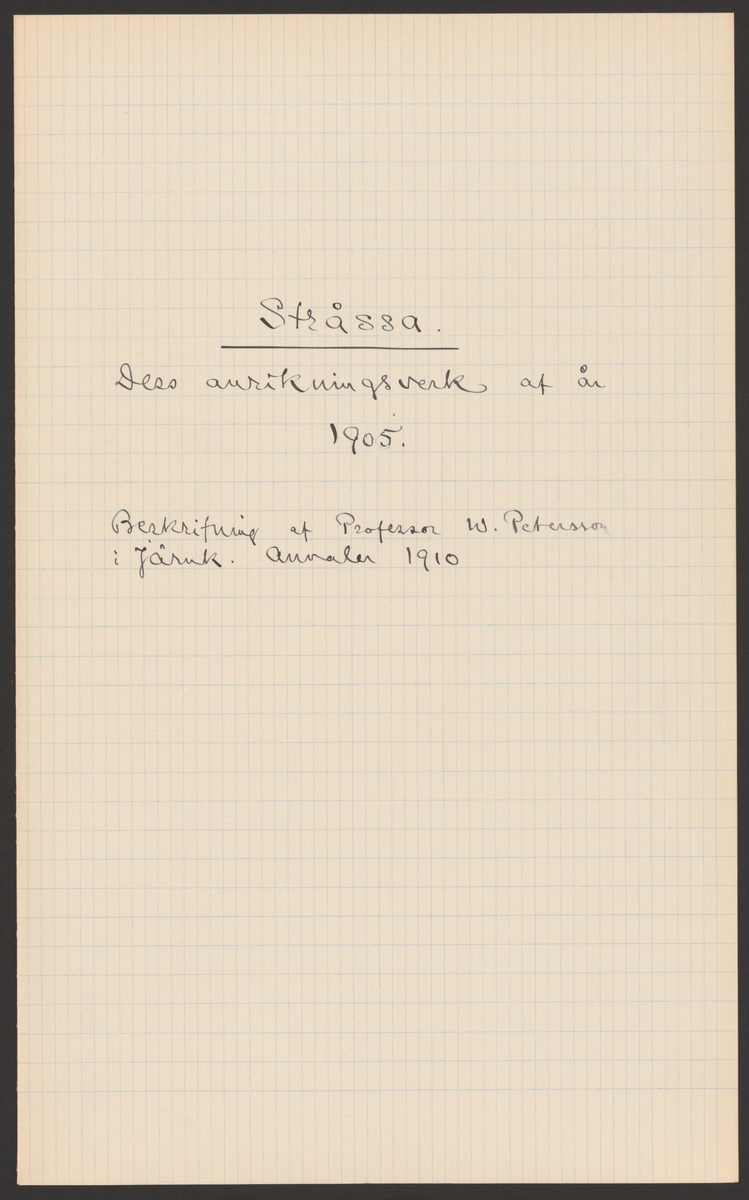 Stråssa.
Dess anrikningsverk af år
1905.
Beskrifning af Professor W. Petersson
i Järnk. Annaler 1910